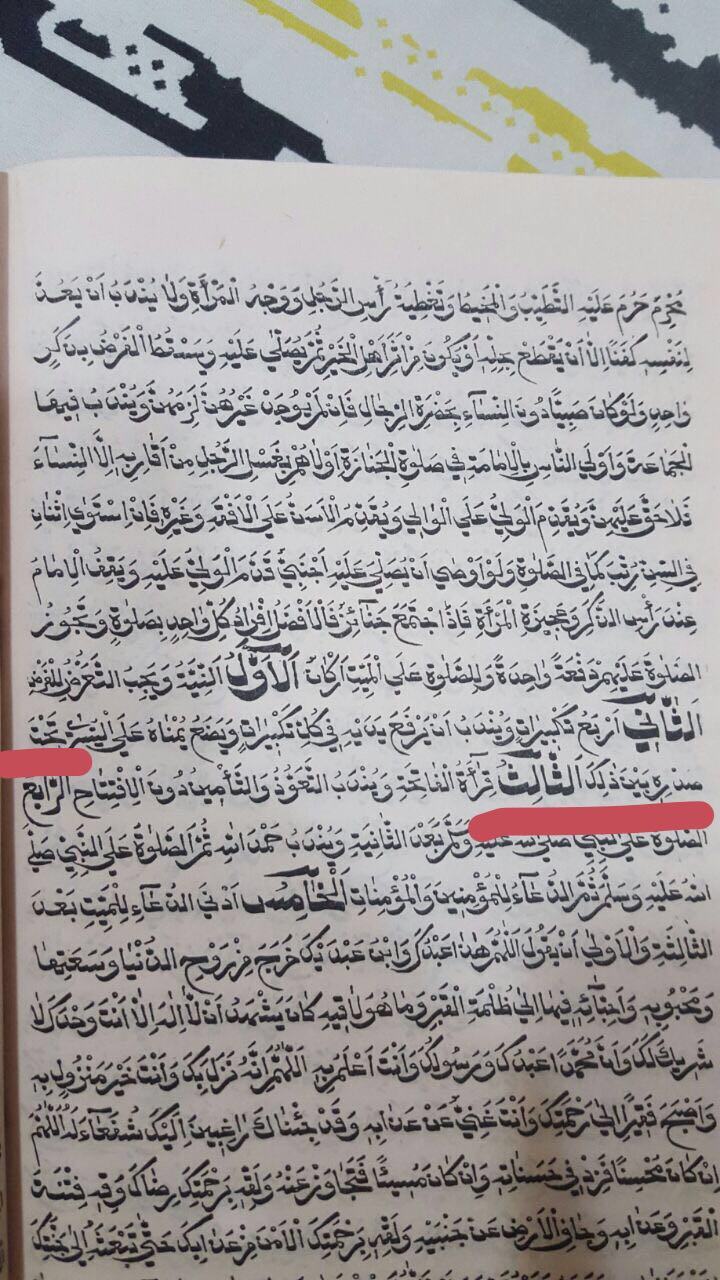 مُحْرِمٌ حَرُمَ عَلَيْهِ التَّطَيُّبُ وَالْمَخِيطُ وَتَغْطِيَةُ رَأْسِ الرَّجُلِ وَوَجْهُ الْمَرْأَةِ وَلَا يُنْدَبُ أَنْ يَعُدَّ
لِنَفْسِهِ كَفَنًا إِلَّا أَنْ يَقْطَعَ بِحِلِّهِ أَوْ يَكُونَ مِنْ أَثَرِ أَهْلِ الْخَيْرِ ثُمَّ يُصَلِّي عَلَيْهِ وَيَسْقُطُ الْفَرْضُ بِذَكَرٍ
وَاحِدٍ وَلَوْ كَانَ صَبِيًّا دُونَ النِّسَاءِ بِحَضْرَةِ الرِّجَالِ فَإِنْ لَمْ يُوجَدْ غَيْرُهُنَّ لَزِمَهُنَّ وَيُنْدَبُ فِيهَا
الْجَمَاعَةُ وَأَوْلَى النَّاسِ بِالْإِمَامَةِ فِي صَلٰوةِ الْجَنَازَةِ أَوْلَاهُمْ بِغَسْلِ الرَّجُلِ مِنْ أَقَارِبِهِ إِلَّا النِّسَاءَ
فَلَا حَقَّ لَهُنَّ وَيُقَدَّمُ الْوَلِيُّ عَلَى الْوَالِي وَيُقَدَّمُ الْأَسَنُّ عَلَى الْأَفْقَهِ وَغَيْرِهِ فَإِنْ اسْتَوٰى اثْنَانِ
فِي السِّنِّ رُتِّبَ كَمَا فِي الصَّلٰوةِ وَلَوْ أَوْصٰى أَنْ يُصَلِّيَ عَلَيْهِ أَجْنَبِيٌّ قُدِّمَ الْوَلِيُّ عَلَيْهِ وَيَقِفُ الْإِمَامُ
عِنْدَ رَأْسِ الذَّكَرِ وَعَجِيزَةِ الْمَرْأَةِ فَإِذَا اجْتَمَعَ جَنَائِزُ فَالْأَفْضَلُ إِفْرَادُ كُلِّ وَاحِدٍ بِصَلٰوةٍ وَيَجُوزُ
الصَّلٰوةُ عَلَيْهِمْ دَفْعَةً وَاحِدَةً وَلِلصَّلٰوةِ عَلَى الْمَيِّتِ أَرْكَانٌ اَلْأَوَّلُ النِّيَّةُ وَيَجِبُ التَّعَرُّضُ لِلْفَرْضِ
اَلثَّانِي أَرْبَعُ تَكْبِيرَاتٍ وَيُنْدَبُ أَنْ يَرْفَعَ يَدَيْهِ فِي كُلِّ تَكْبِيرَاتٍ وَيَضَعَ يُمْنَاهُ عَلَى الْيُسْرٰى تَحْتَ
صَدْرِهِ بَيْنَ ذٰلِكَ اَلثَّالِثُ قِرَأَةُ الْفَاتِحَةِ وَيُنْدَبُ التَّعَوُّذُ وَالتَّأْمِينُ دُونَ الْاِفْتِتَاحِ اَلرَّابِعُ
الصَّلٰوةُ عَلَى النَّبِيِّ صَلَّى اللهُ عَلَيْهِ وَسَلَّمَ بَعْدَ الثَّانِيَةِ وَيُنْدَبُ حَمْدُ اللهِ ثُمَّ الصَّلٰوةُ عَلَى النَّبِيِّ صَلَّى
اللهُ عَلَيْهِ وَسَلَّمَ ثُمَّ الدُّعَاءُ لِلْمُؤْمِنِينَ وَالْمُؤْمِنَاتِ اَلْخَامِسُ أَدْنَى الدُّعَاءِ لِلْمَيِّتِ بَعْدَ
الثَّالِثَةِ وَالْأَوْلٰى أَنْ يَقُولَ اللّٰهُمَّ هٰذَا عَبْدُكَ وَابْنُ عَبْدَيْكَ خَرَجَ مِنْ رَوْحِ الدُّنْيَا وَسَعَتِهَا
وَمَحْبُوبِهِ وَأَحِبَّائِهِ فِيهَا إِلٰى ظُلْمَةِ الْقَبْرِ وَمَا هُوَ لَاقِيهِ كَانَ يَشْهَدُ أَنْ لَا إِلٰهَ إِلَّا أَنْتَ وَحْدَكَ لَا
شَرِيكَ لَكَ وَأَنَّ مُحَمَّدًا عَبْدُكَ وَرَسُولُكَ وَأَنْتَ أَعْلَمُ بِهِ اَللّٰهُمَّ إِنَّهُ نَزَلَ بِكَ وَأَنْتَ خَيْرُ مَنْزُولٍ بِهِ
وَأَصْبَحَ فَقِيرًا إِلٰى رَحْمَتِكَ وَأَنْتَ غَنِيٌّ عَنْ عَذَابِهِ وَقَدْ جِئْنَاكَ رَاغِبِينَ إِلَيْكَ شُفَعَاءَ لَهُ اَللّٰهُمَّ
إِنْ كَانَ مُحْسِنًا فَزِدْ فِي حَسَنَاتِهِ وَإِنْ كَانَ مُسِيئًا فَتَجَاوَزْ عَنْهُ وَلَقِّهِ بِرَحْمَتِكَ رِضَاكَ وَقِهِ فِتْنَةَ
الْقَبْرِ وَعَذَابِهِ وَجَافِ الْأَرْضَ عَنْ جَنْبَيْهِ وَلَقِّهِ بِرَحْمَتِكَ الْأَمْنَ مِنْ عَذَابِكَ حَتّٰى تَبْعَثَهُ إِلٰى جَنَّتِكَ